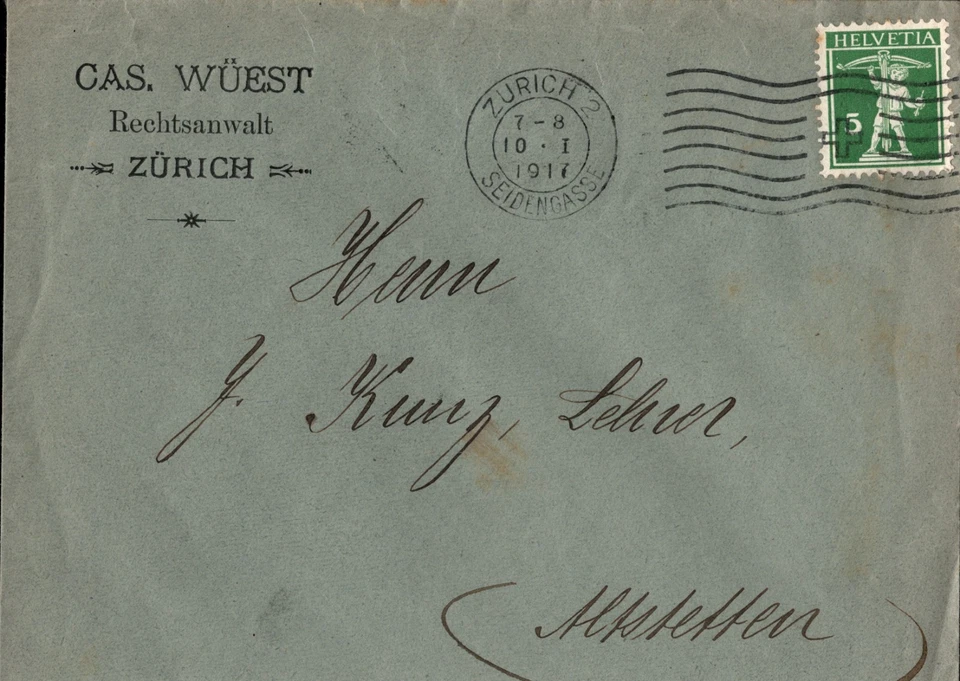 CAS. WÜEST
Rechtsanwalt
ZÜRICH
ZÜRICH 2
7-8
10 · I
1917
SEIDENGASSE
HELVETIA
5
Herrn
J. Kunz, Lehrer,
Altstetten